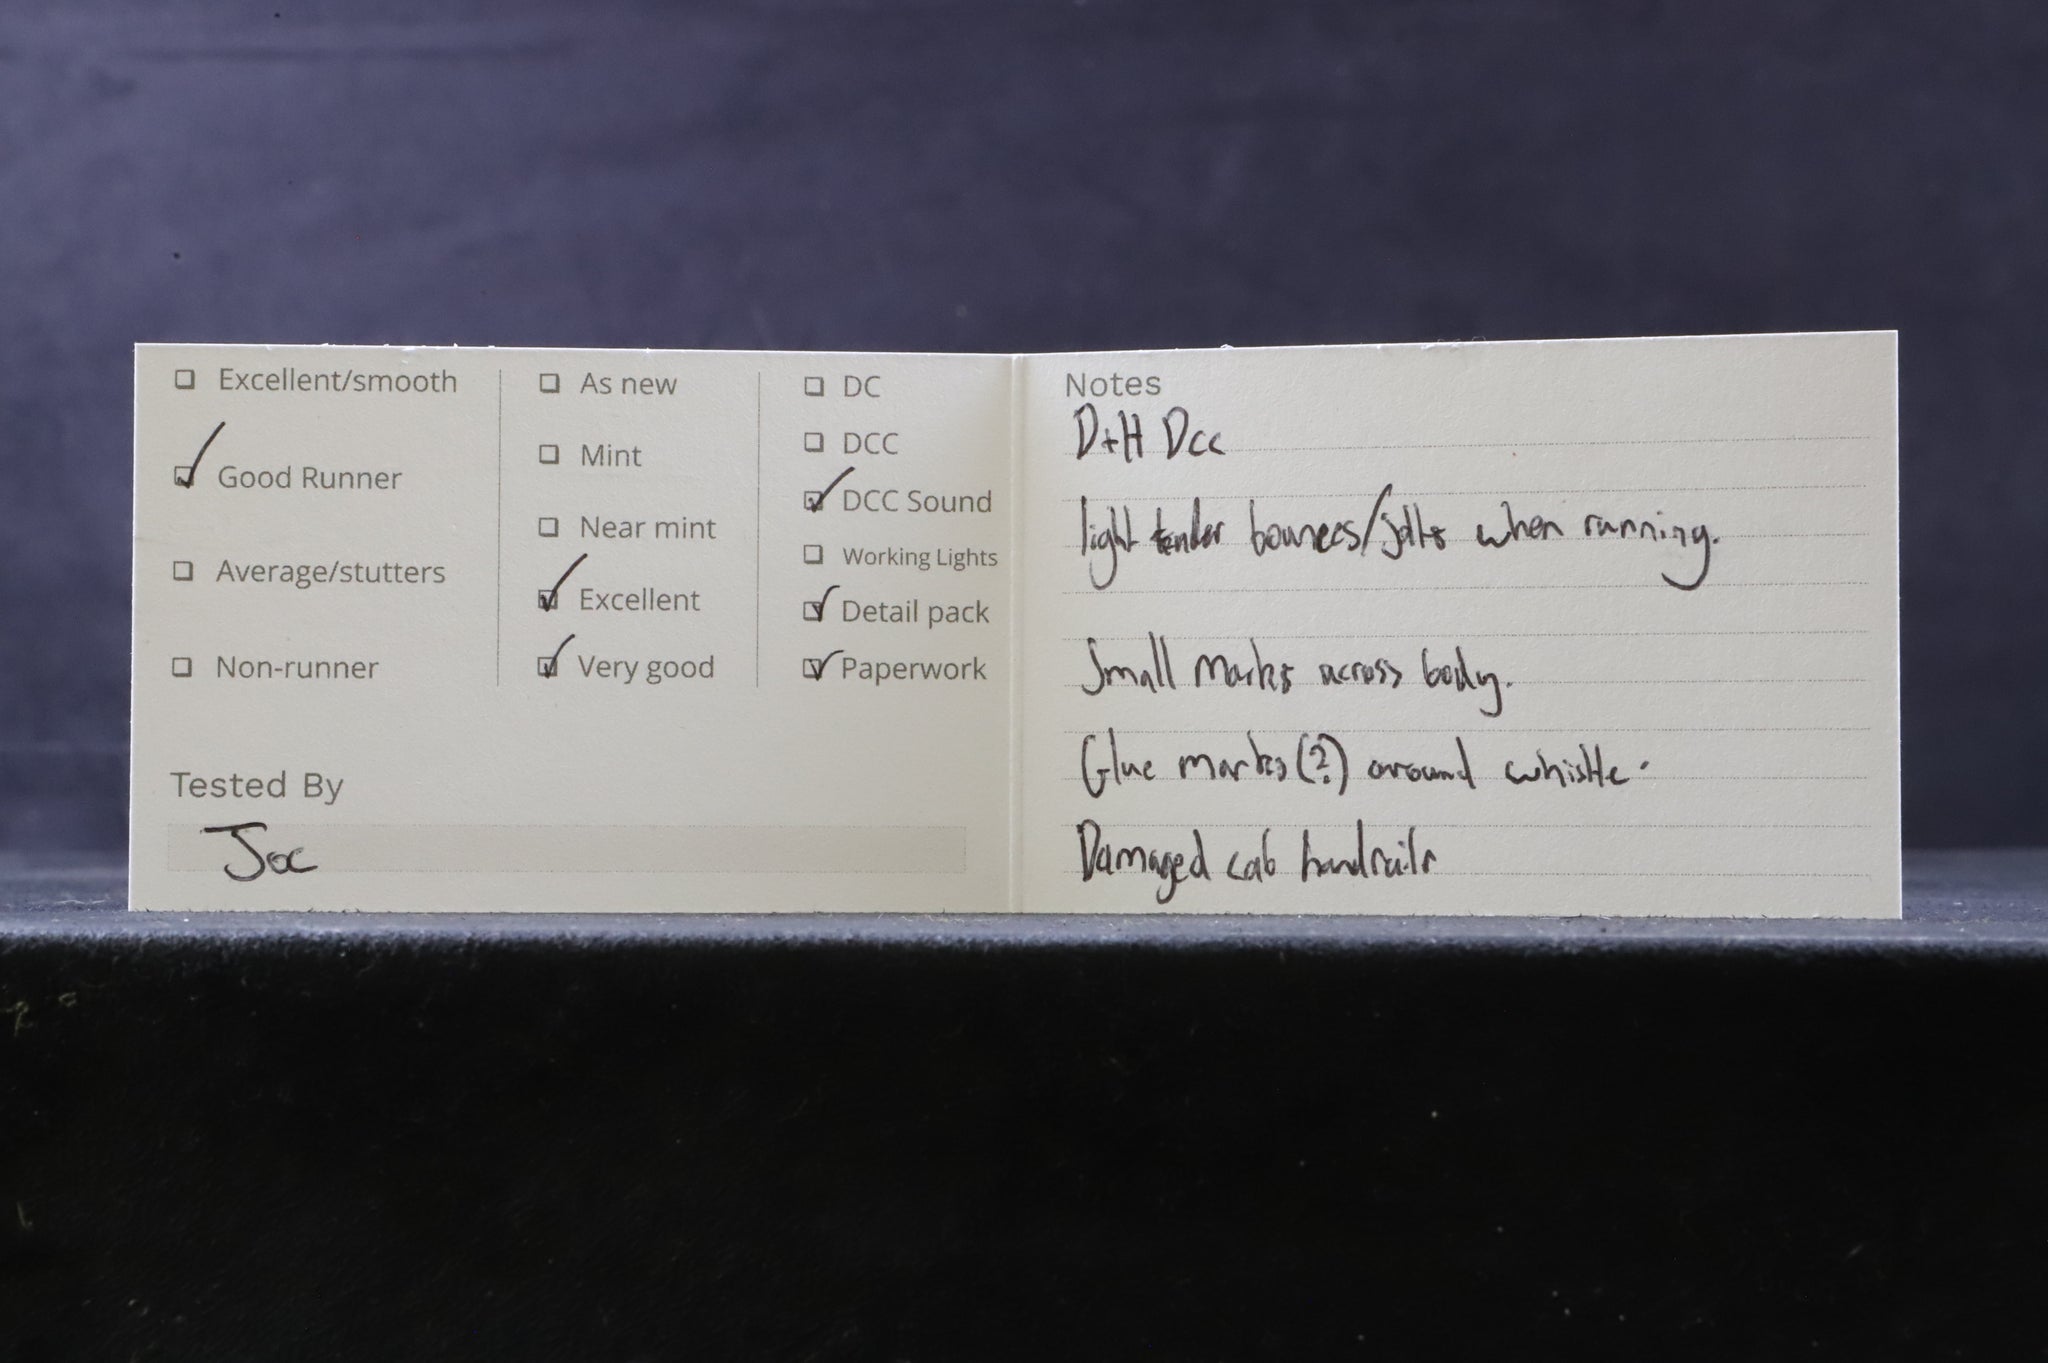 Excellent/smooth
Good Runner
Average/stutters
Non-runner
As new
Mint
Near mint
Excellent
Very good
DC
DCC
DCC Sound
Working Lights
Detail pack
Paperwork
Tested By
Joe
Notes
D+H Dcc
light tender bounces/jolts when running.
Small marks across body.
Glue marks(?) around whistle.
Damaged cab handrails